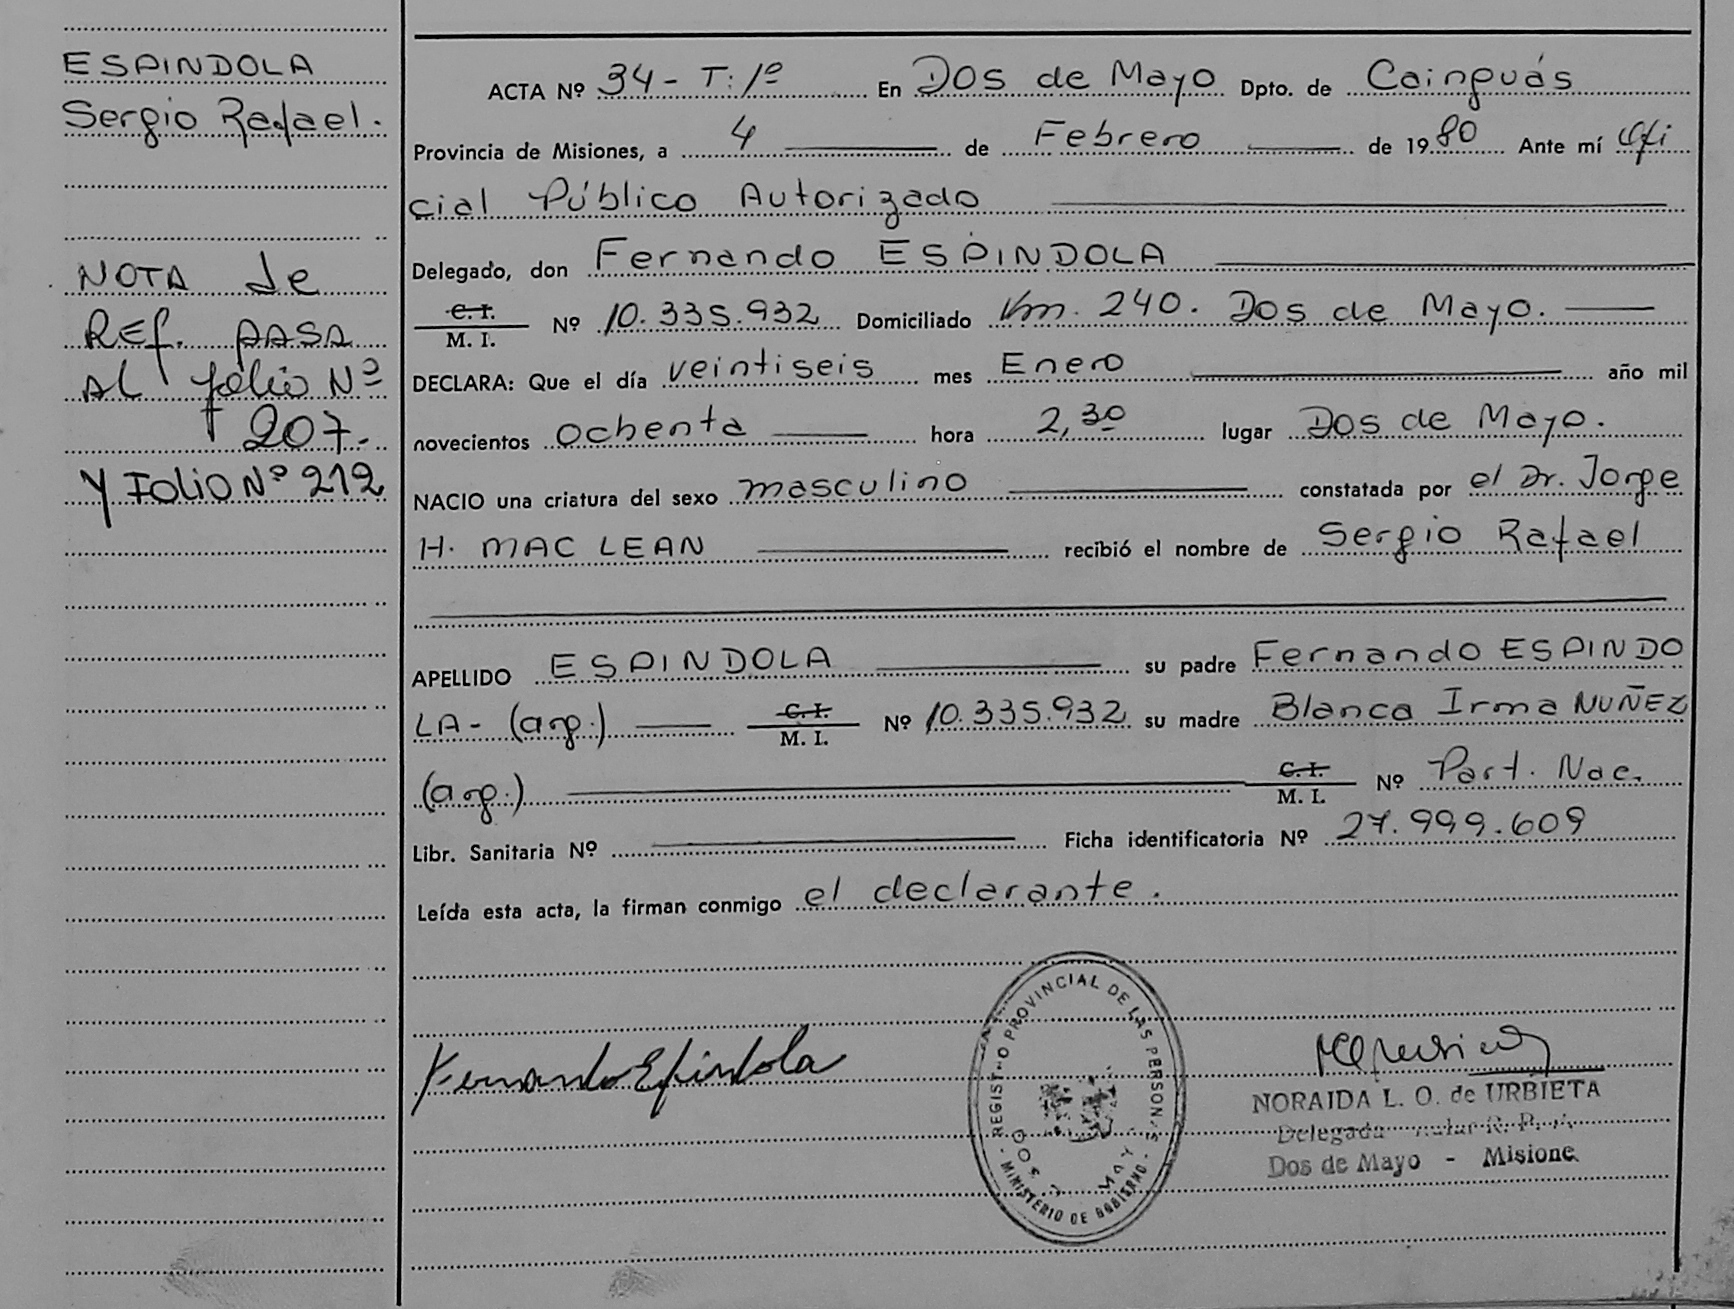 ESPINDOLA
Sergio Rafael.
NOTA de
REf. PASA
AL folio Nº
207.-
Y Folio Nº 212
ACTA Nº 34 - T: 1º En Dos de Mayo Dpto. de Cainguás
Provincia de Misiones, a 4 de Febrero de 1980 Ante mí Ofi
cial Público Autorizado
Delegado, don Fernando ESPINDOLA
C. I.
M. I. Nº 10.335.932 Domiciliado Km. 240. Dos de Mayo.
DECLARA: Que el día veintiseis mes Enero año mil
novecientos ochenta hora 2,30 lugar Dos de Mayo.
NACIO una criatura del sexo masculino constatada por el Dr. Jorge
H. MAC LEAN recibió el nombre de Sergio Rafael
APELLIDO ESPINDOLA su padre Fernando ESPINDO
LA - (arg.) C. I. M. I. Nº 10.335.932 su madre Blanca Irma NUÑEZ
(arg.) C. I. M. I. Nº Part. Nac.
Libr. Sanitaria Nº Ficha identificatoria Nº 27.999.609
Leída esta acta, la firman conmigo el declarante.
Fernando Espindola
REGISTRO PROVINCIAL DE LAS PERSONAS
DOS DE MAYO
- MINISTERIO DE GOBIERNO -
NORAIDA L. O. de URBIETA
Delegada R. P.
Dos de Mayo - Misione